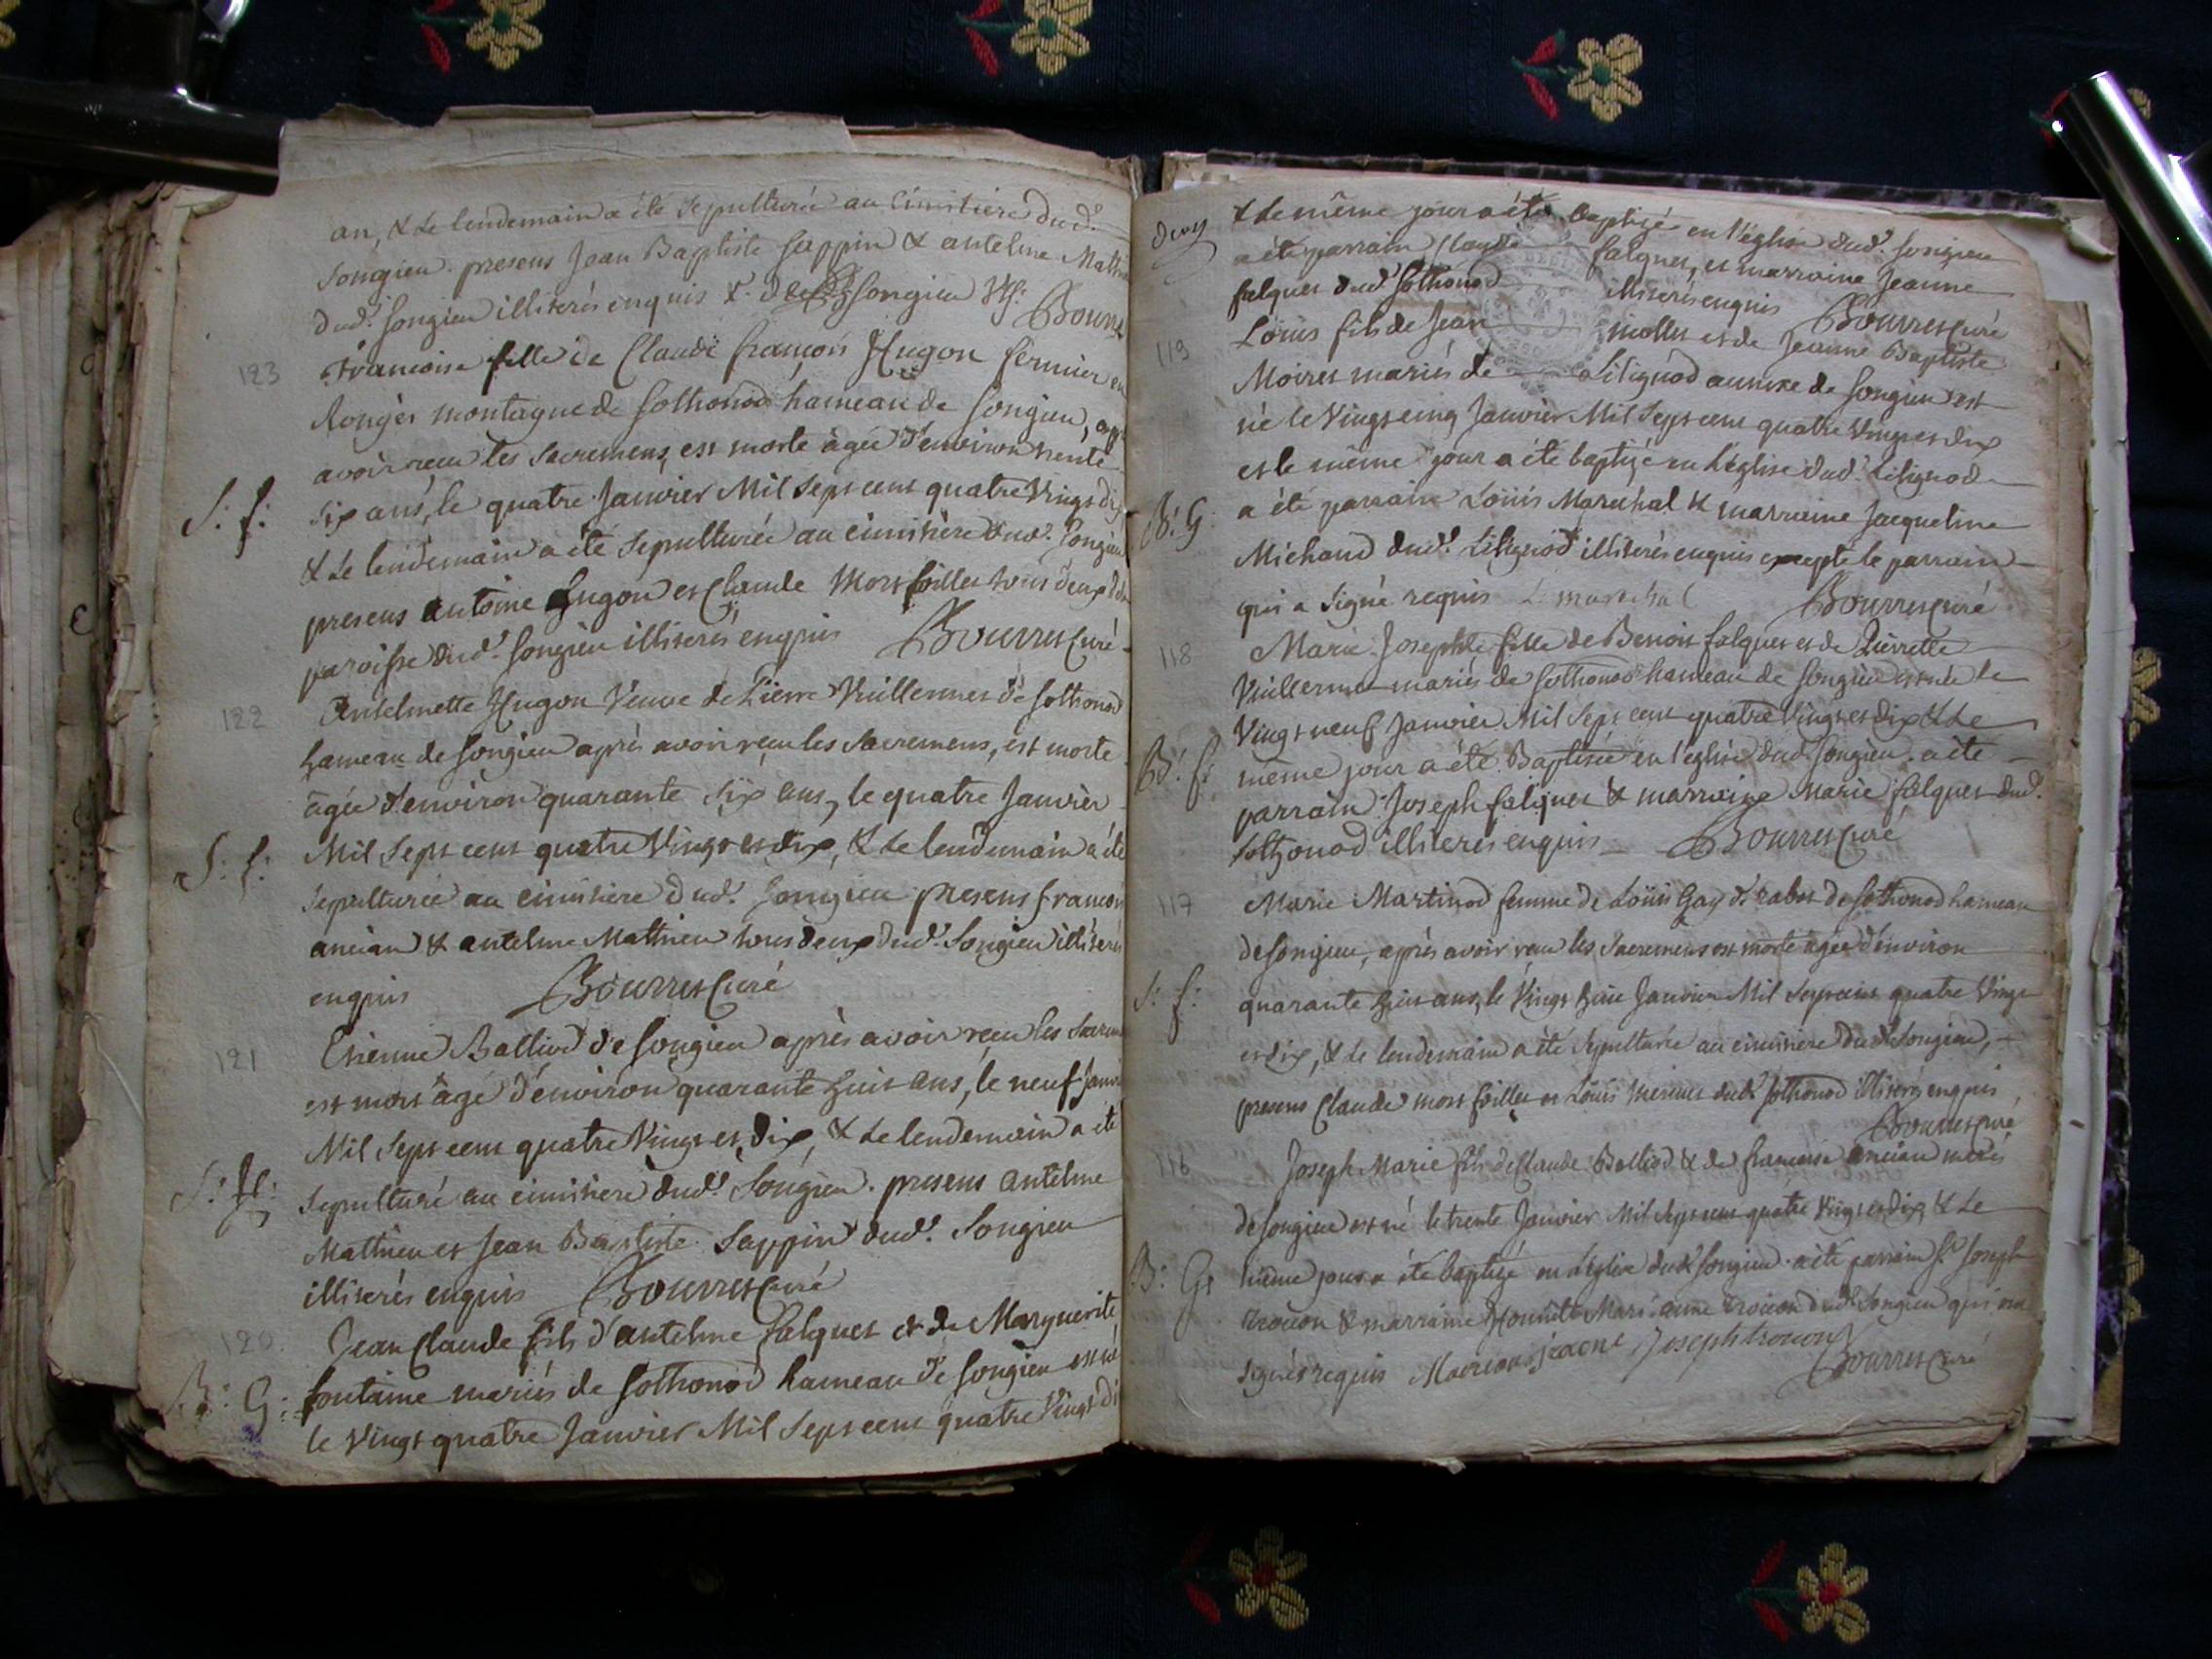 an, & le lendemain a été sepulturé au cimitiere dud.
Songieu. presens Jean Baptiste Sappin & antelme Mathieu
dud. Songieu illiterés enquis Bourret
123
francoise fille de Claude françois Hugon fermier en
montagne de Sothonod hameau de Songieu,
avoir reçu les Sacremens, est morte âgée d'environ trente
S: f: Six ans, le quatre Janvier Mil Sept cent quatre Vingt dix
& le lendemain a été Sepulturée au cimitière dud. Songieu
presens antoine hugon et Claude Mortfoillet tous deux
paroisse dud. Songieu illiterés enquis Bourret Curé
122
Antelmette Hugon Veuve de Pierre Vuillermet de Sothonod
hameau de Songieu après avoir reçu les Sacremens, est morte
âgée d'environ quarante Six ans, le quatre Janvier
S: f: Mil Sept cent quatre Vingt et dix, & le lendemain a été
Sepulturée au cimitiere dud. Songieu presens francois
ancian & antelme Mathieu tous deux dud. Songieu illiterés
enquis Bourret Curé
121
Etienne Balliod de Songieu après avoir reçu les
est mort âgé d'environ quarante huit ans, le neuf
Mil Sept cent quatre Vingt et dix, & le lendemain a été
S: Sepulturé au cimitiere dud. Songieu. presens antelme
Mathieu et Jean Baptiste Sappin dud. Songieu
illiterés enquis Bourret Curé
120
Jean Claude fils d'antelme falquet et de Marguerite
B: G: fontaine mariés de Sothonod hameau de Songieu est né
le Vingt quatre Janvier Mil Sept cent quatre Vingt
& le même jour a été baptizé en l'église dud. Songieu
a été parrain Claude falquet, et marraine Jeanne
falquet dud. Sothonod illiterés enquis Bourret Curé
119
Loüis fils de Jean mollet et de Jeanne Baptiste
Moiret mariés de Lilignod annexe de Songieu est
né le Vingt cinq Janvier Mil Sept cent quatre Vingt et dix
et le même jour a été baptizé en l'église dud. Lilignod
B: G: a été parrain Loüis Marechal & marraine Jacqueline
Michaud dud. Lilignod illiterés enquis excepté le parrain
qui a Signé requis L marechal Bourret Curé
118
Marie Josephte fille de Benoit falquet et de Pierrette
Vuillermet mariés de Sothonod hameau de Songieu est née le
Vingt neuf Janvier Mil Sept cent quatre Vingt et dix & le
B: f: même jour a été Baptisée en l'église dud. Songieu. a été
parrain Joseph falquet & marraine Marie falquet dud.
Sothonod illiterés enquis Bourret Curé
117
Marie Martinod femme de Loüis Gay de Sothonod hameau
de Songieu, après avoir reçu les Sacremens est morte âgée d'environ
S: f: quarante huit ans, le Vingt huit Janvier Mil Sept cent quatre Vingt
et dix, & le lendemain a été Sepulturée au cimitiere dud. Songieu,
presens Claude mortfoillet et Loüis dud. Sothonod illiterés enquis
Bourret Curé
116
Joseph Marie fils de Claude Balliod & de francoise ancian mariés
de Songieu est né le trente Janvier Mil Sept cent quatre Vingt et dix & le
B: G: même jour a été baptizé en l'église dud. Songieu. a été parrain Sr. Joseph
trocon & marraine Marianne trocon dud. Songieu qui ont
Signés requis Joseph trocon Bourret Curé